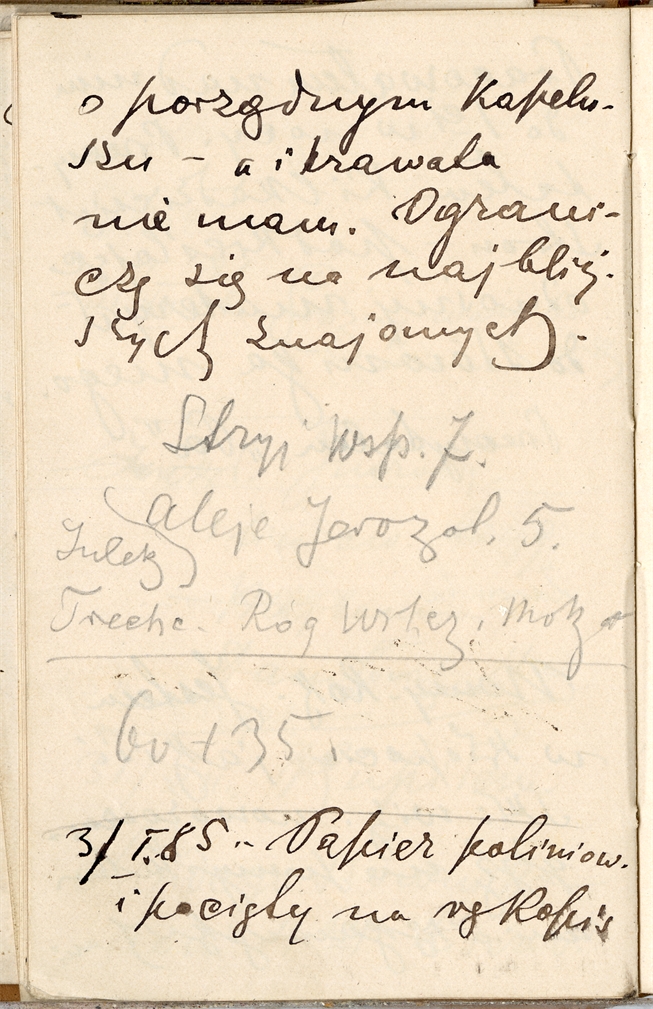 o porządnym kapelu-
szu – a i krawata
nie mam. Ograni-
czę się na najbliż-
szych znajomych.
Stryj Wsp. 7.
Aleje Jerozol. 5.
Julek
Trechc. Róg Wilcz. i Mok
60 + 35
3/I.85. Papier poliniow.
i pocięty na rękopis